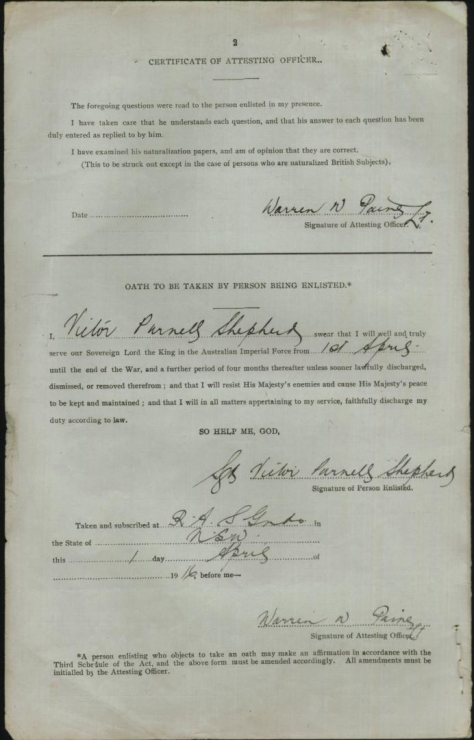 2
CERTIFICATE OF ATTESTING OFFICER.
The foregoing questions were read to the person enlisted in my presence.
I have taken care that he understands each question, and that his answer to each question has been
duly entered as replied to by him.
I have examined his naturalization papers, and am of opinion that they are correct.
(This to be struck out except in the case of persons who are naturalized British Subjects).
Date Warren W Paine Lt.
Signature of Attesting Officer.
OATH TO BE TAKEN BY PERSON BEING ENLISTED.*
I, Victor Parnell Shepherd swear that I will well and truly
serve our Sovereign Lord the King in the Australian Imperial Force from 1st April
until the end of the War, and a further period of four months thereafter unless sooner lawfully discharged,
dismissed, or removed therefrom; and that I will resist His Majesty's enemies and cause His Majesty's peace
to be kept and maintained; and that I will in all matters appertaining to my service, faithfully discharge my
duty according to law.
SO HELP ME, GOD,
Sgd Victor Parnell Shepherd
Signature of Person Enlisted.
Taken and subscribed at R. A. S Gnds in
the State of NSW
this 1 day April of
1916 before me—
Warren W Paine Lt
Signature of Attesting Officer.
*A person enlisting who objects to take an oath may make an affirmation in accordance with the
Third Schedule of the Act, and the above form must be amended accordingly. All amendments must be
initialled by the Attesting Officer.